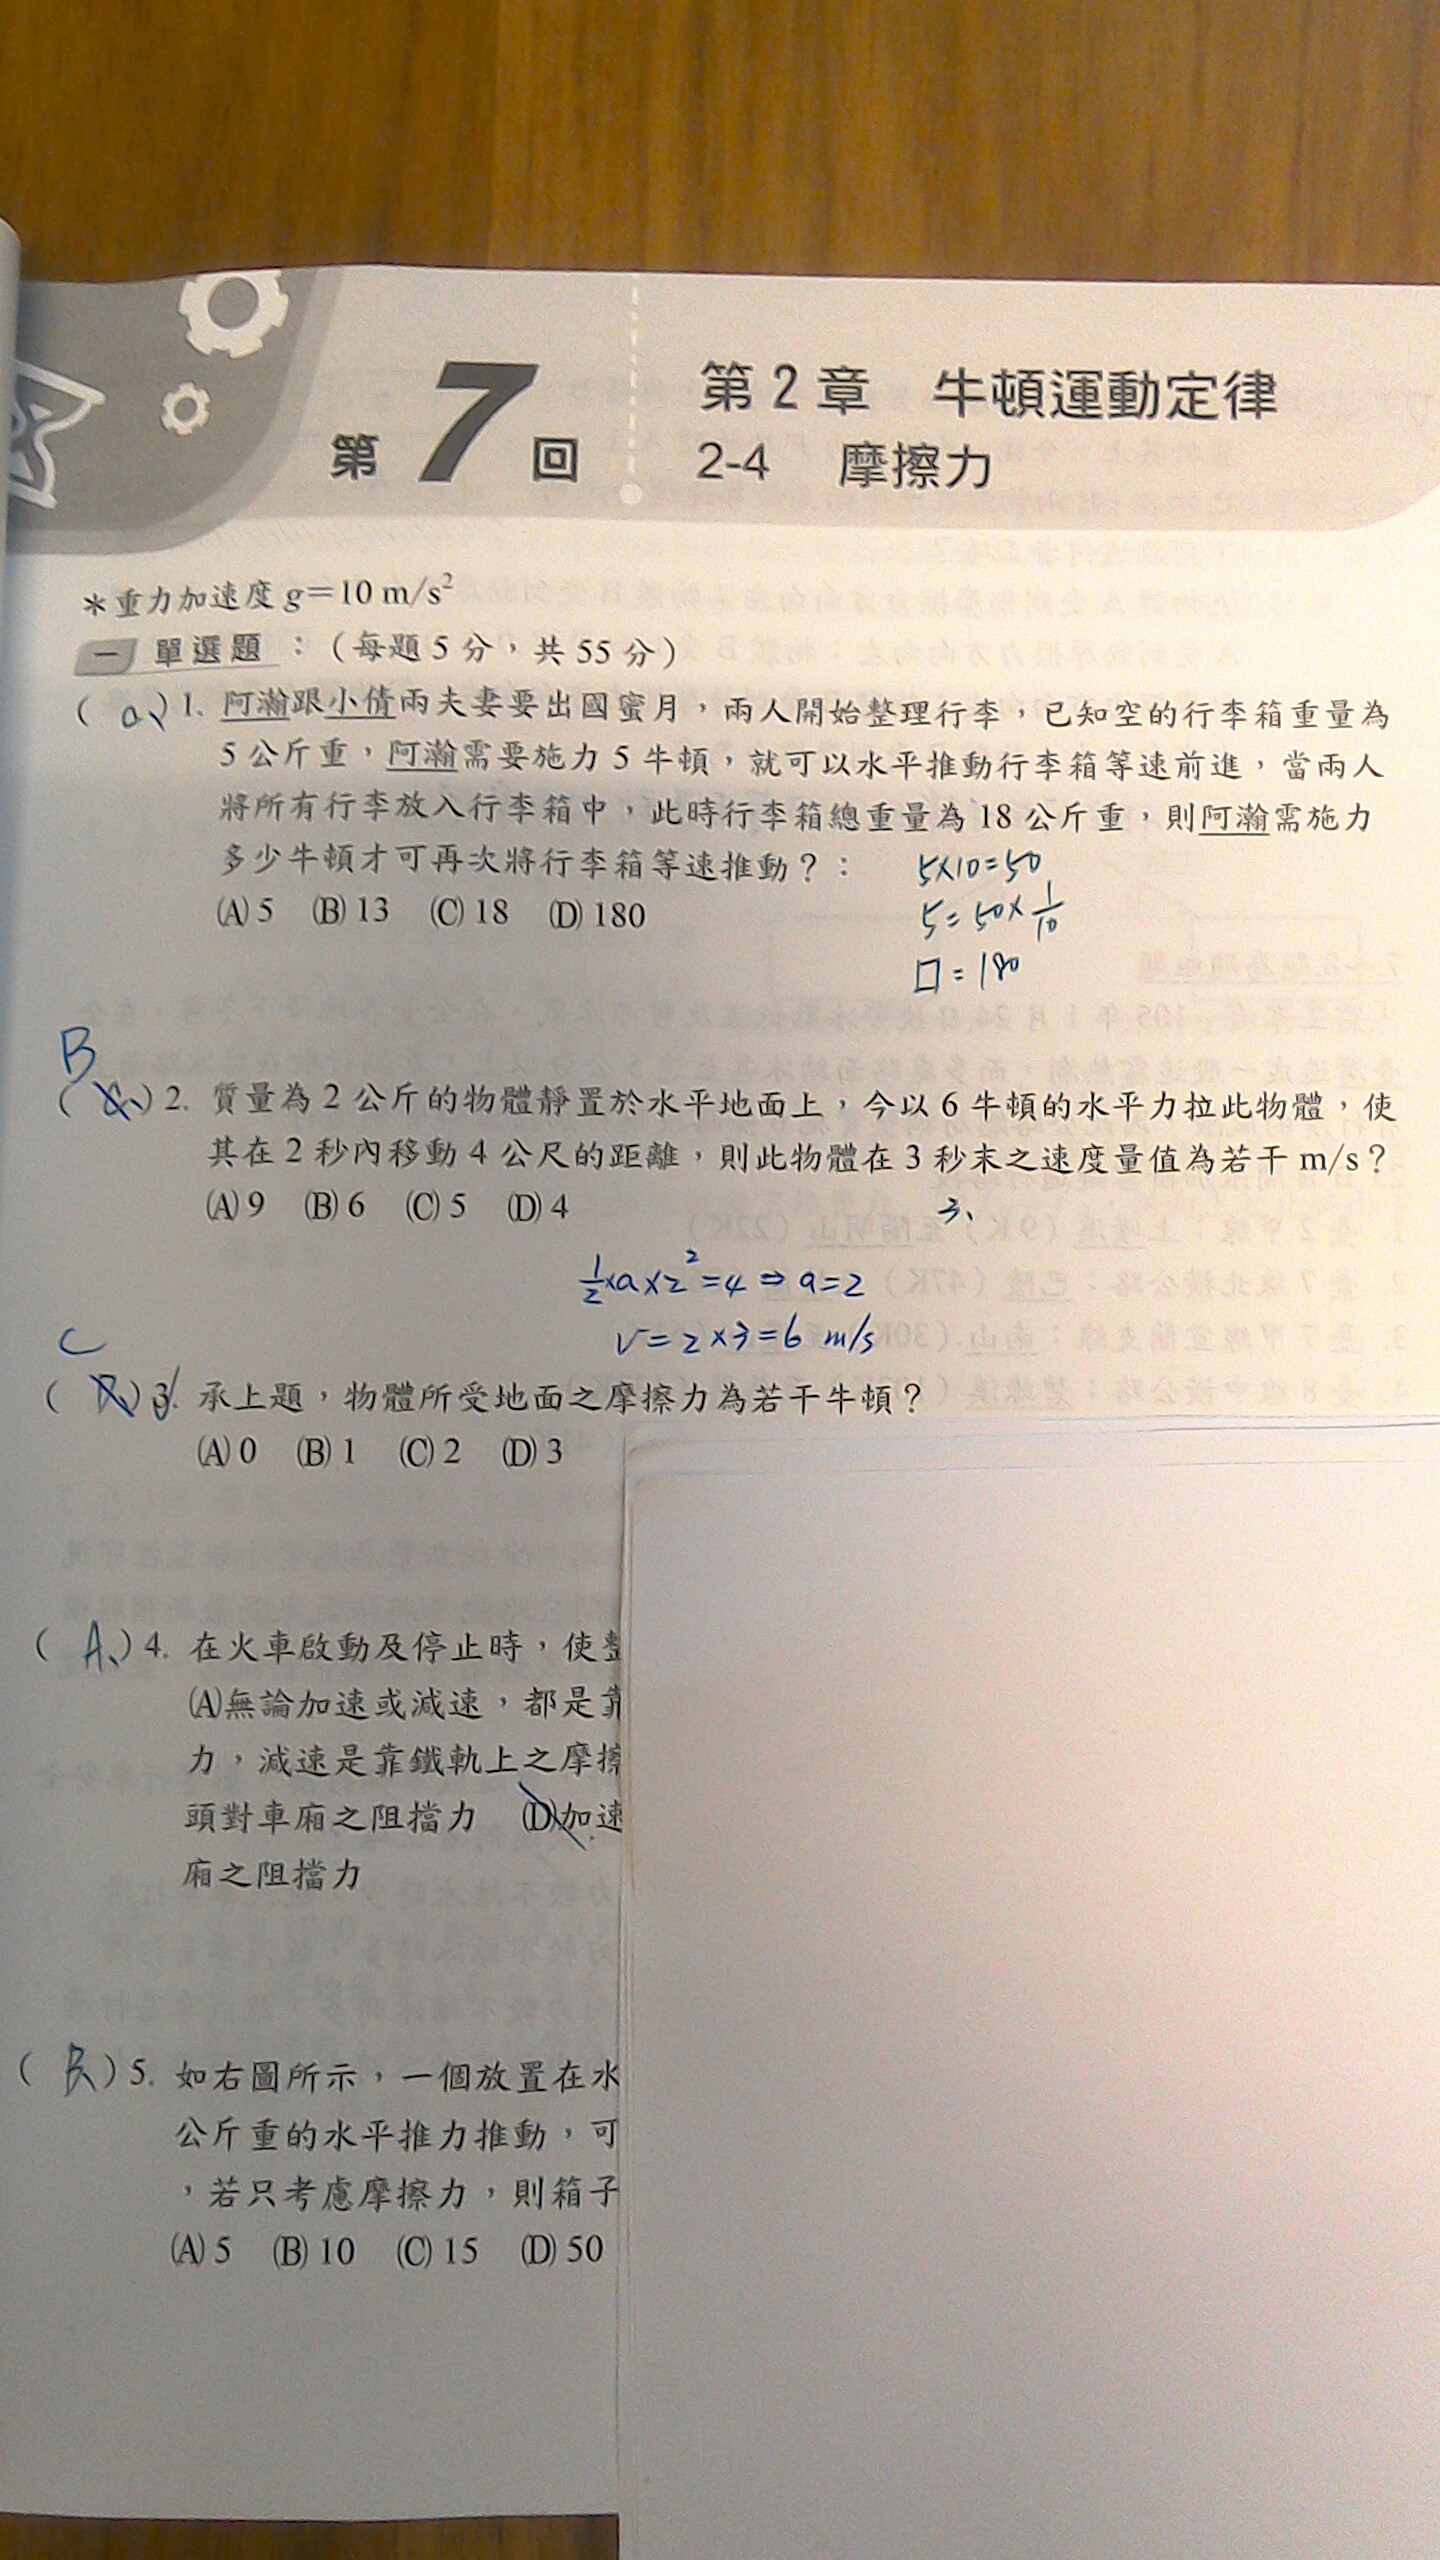 第7回
第2章 牛頓運動定律
2-4 摩擦力
＊重力加速度 g＝10 m/s²
一 單選題：（每題5分，共55分）
1. 阿瀚跟小倩兩夫妻要出國蜜月，兩人開始整理行李，已知空的行李箱重量為
5公斤重，阿瀚需要施力5牛頓，就可以水平推動行李箱等速前進，當兩人
將所有行李放入行李箱中，此時行李箱總重量為18公斤重，則阿瀚需施力
多少牛頓才可再次將行李箱等速推動？：
5×10=50
(A) 5 (B) 13 (C) 18 (D) 180
5=50×1/10
□=180
B
( )2. 質量為2公斤的物體靜置於水平地面上，今以6牛頓的水平力拉此物體，使
其在2秒內移動4公尺的距離，則此物體在3秒末之速度量值為若干 m/s？
(A) 9 (B) 6 (C) 5 (D) 4
3、
1/2×a×2²=4⇒a=2
v=2×3=6 m/s
C
( )3. 承上題，物體所受地面之摩擦力為若干牛頓？
(A) 0 (B) 1 (C) 2 (D) 3
(A、)4. 在火車啟動及停止時，使整
(A)無論加速或減速，都是靠
力，減速是靠鐵軌上之摩擦
頭對車廂之阻擋力 (D)加速
廂之阻擋力
(B)5. 如右圖所示，一個放置在水
公斤重的水平推力推動，可
，若只考慮摩擦力，則箱子
(A) 5 (B) 10 (C) 15 (D) 50